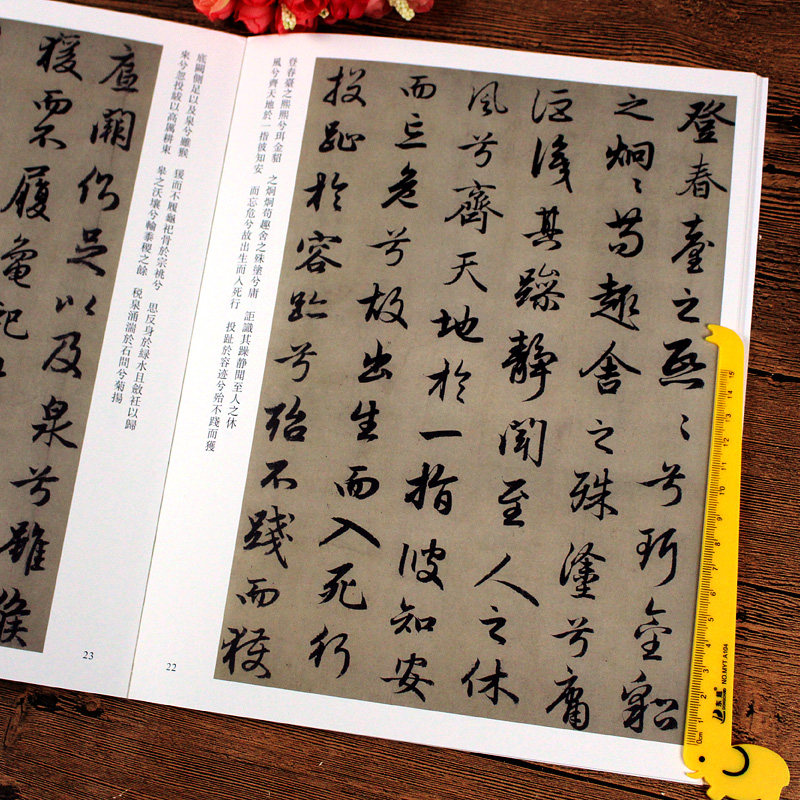 登春臺之熙〻兮珥金貂
之炯〻苟趣舍之殊塗兮庸
詎識其躁靜聞至人之休
風兮齊天地於一指彼知安
而忘危兮故出生而入死行
投趾於容迹兮殆不踐而獲
登春臺之熙熙兮珥金貂 之炯炯苟趣舍之殊塗兮庸 詎識其躁靜聞至人之休
風兮齊天地於一指彼知安 而忘危兮故出生而入死行 投趾於容迹兮殆不踐而獲
22
底闕側足以及泉兮雖猴 猨而不履龜祀骨於宗祧兮 思反身於緑水且斂衽以歸
來兮忽投紱以高厲耕東 皋之沃壤兮輸黍稷之餘 税泉涌湍於石間兮菊揚
底闕側足以及泉兮雖猴
猨而不履龜祀
23
0cm 1 2 3 4 5 6 7 8 9 10 11 12 13 14 15
NO.MYT A/004